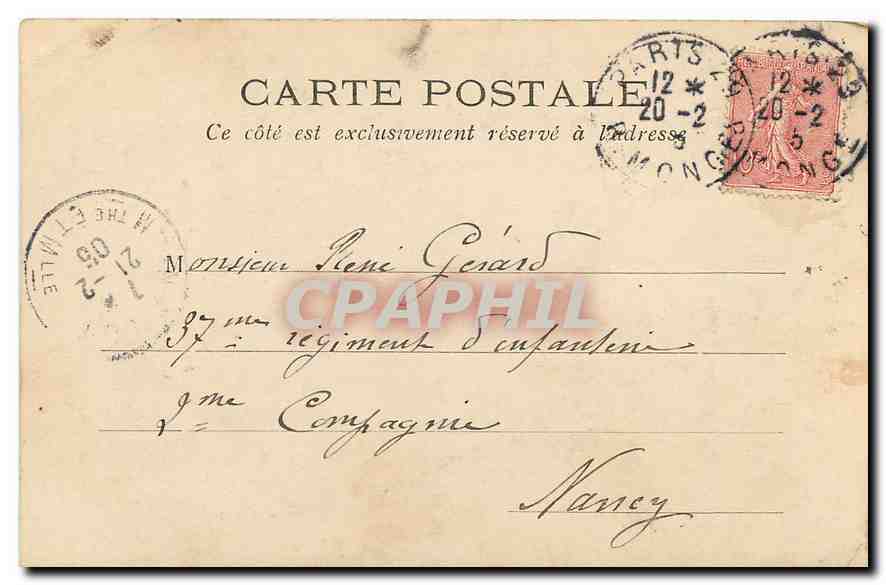 CARTE POSTALE
Ce côté est exclusivement réservé à l'adresse
PARIS 23
12 *
20 -2
5
R. MONGE
12 *
20 -2
5
MONGE
Monsieur René Gérard
37me régiment d'infanterie
2me Compagnie
Nancy
CPAPHIL
MTHE ET MLLE
7 *
21 -2
05